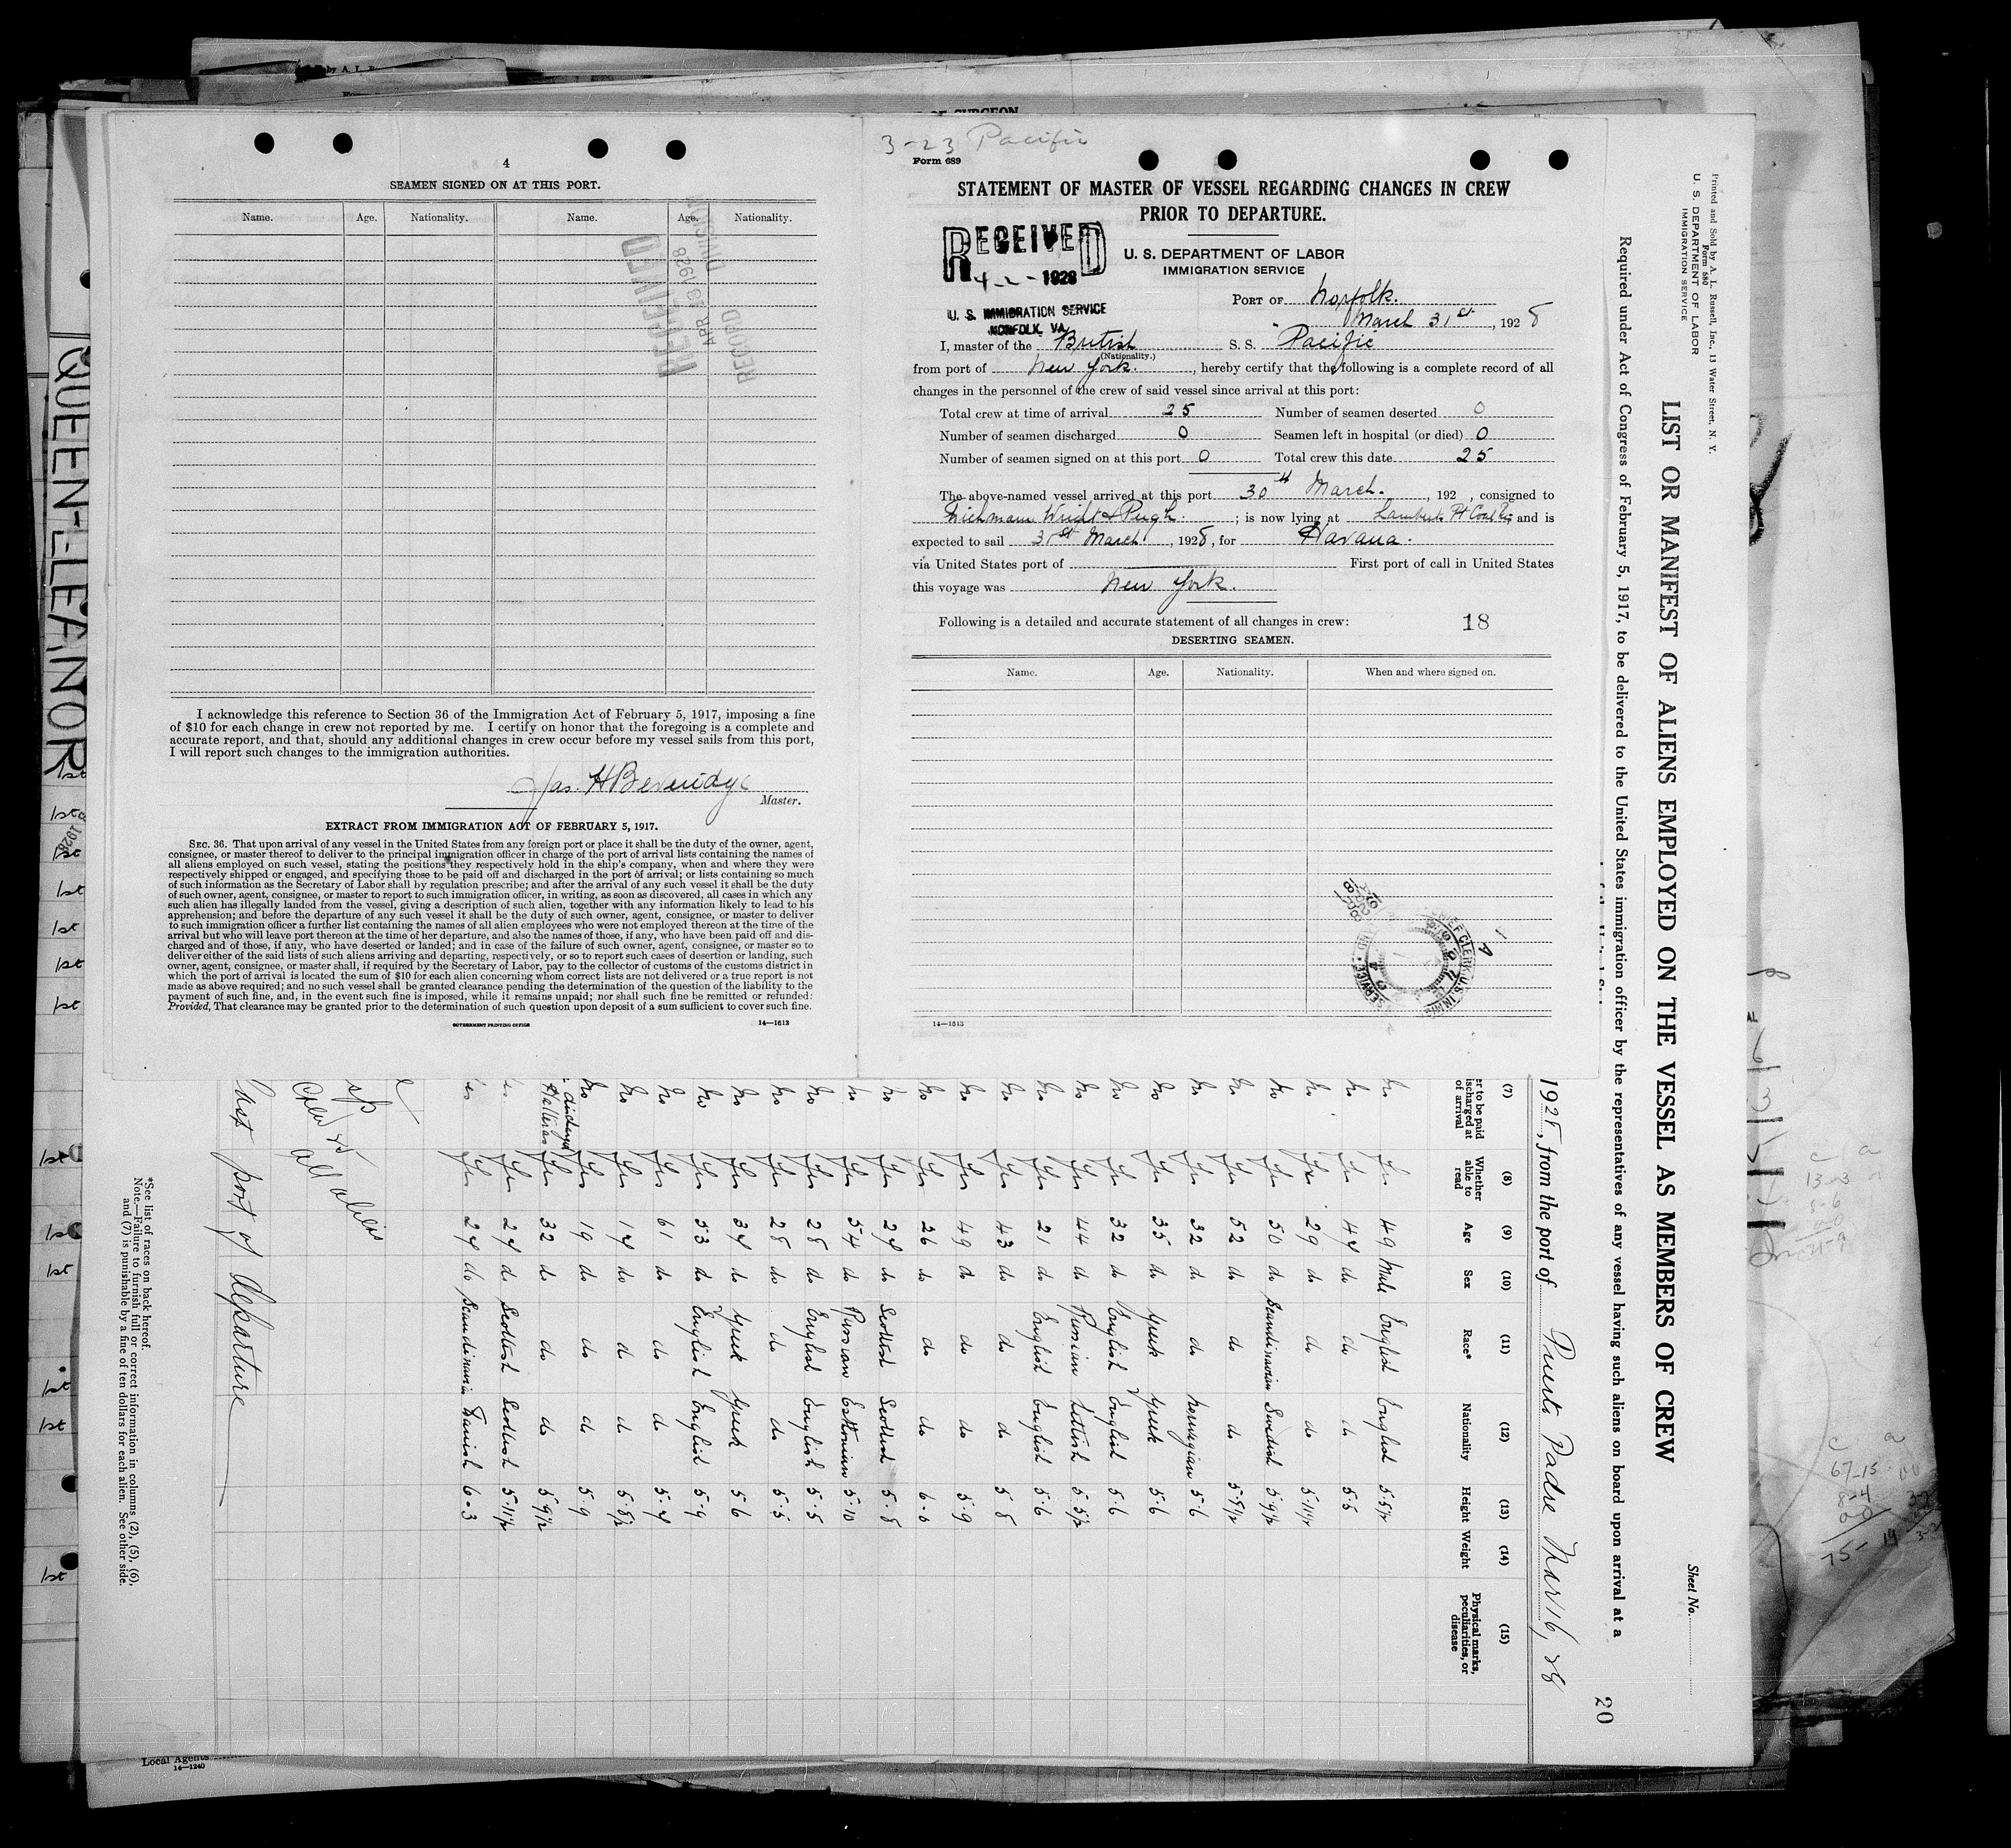 4
SEAMEN SIGNED ON AT THIS PORT.
Name. Age. Nationality. Name. Age. Nationality.
RECEIVED
APR 23 1928
RECORD DIVISION
I acknowledge this reference to Section 36 of the Immigration Act of February 5, 1917, imposing a fine
of $10 for each change in crew not reported by me. I certify on honor that the foregoing is a complete and
accurate report, and that, should any additional changes in crew occur before my vessel sails from this port,
I will report such changes to the immigration authorities.
Jas. H Beveridge
Master.
EXTRACT FROM IMMIGRATION ACT OF FEBRUARY 5, 1917.
SEC. 36. That upon arrival of any vessel in the United States from any foreign port or place it shall be the duty of the owner, agent,
consignee, or master thereof to deliver to the principal immigration officer in charge of the port of arrival lists containing the names of
all aliens employed on such vessel, stating the positions they respectively hold in the ship's company, when and where they were
respectively shipped or engaged, and specifying those to be paid off and discharged in the port of arrival; or lists containing so much
of such information as the Secretary of Labor shall by regulation prescribe; and after the arrival of any such vessel it shall be the duty
of such owner, agent, consignee, or master to report to such immigration officer, in writing, as soon as discovered, all cases in which any
such alien has illegally landed from the vessel, giving a description of such alien, together with any information likely to lead to his
apprehension; and before the departure of any such vessel it shall be the duty of such owner, agent, consignee, or master to deliver
to such immigration officer a further list containing the names of all alien employees who were not employed thereon at the time of the
arrival but who will leave port thereon at the time of her departure, and also the names of those, if any, who have been paid off and dis-
charged and of those, if any, who have deserted or landed; and in case of the failure of such owner, agent, consignee, or master so to
deliver either of the said lists of such aliens arriving and departing, respectively, or so to report such cases of desertion or landing, such
owner, agent, consignee, or master shall, if required by the Secretary of Labor, pay to the collector of customs of the customs district in
which the port of arrival is located the sum of $10 for each alien concerning whom correct lists are not delivered or a true report is not
made as above required; and no such vessel shall be granted clearance pending the determination of the question of the liability to the
payment of such fine, and, in the event such fine is imposed, while it remains unpaid; nor shall such fine be remitted or refunded:
Provided, That clearance may be granted prior to the determination of such question upon deposit of a sum sufficient to cover such fine.
GOVERNMENT PRINTING OFFICE 14—1613
3-23 Pacific
Form 689
STATEMENT OF MASTER OF VESSEL REGARDING CHANGES IN CREW
PRIOR TO DEPARTURE.
RECEIVED
4-2-1928
U. S. IMMIGRATION SERVICE
NORFOLK, VA.
U. S. DEPARTMENT OF LABOR
IMMIGRATION SERVICE
PORT OF Norfolk.
March 31st, 1928
I, master of the British S. S. Pacific
(Nationality.)
from port of New York., hereby certify that the following is a complete record of all
changes in the personnel of the crew of said vessel since arrival at this port:
Total crew at time of arrival 25 Number of seamen deserted 0
Number of seamen discharged 0 Seamen left in hospital (or died) 0
Number of seamen signed on at this port 0 Total crew this date 25
The above-named vessel arrived at this port 30th March., 192 , consigned to
Wright & Pugh.; is now lying at Lamberts Pt and is
expected to sail 31st March, 1928, for Havana.
via United States port of First port of call in United States
this voyage was New York.
Following is a detailed and accurate statement of all changes in crew: 18
DESERTING SEAMEN.
Name. Age. Nationality. When and where signed on.
14—1613
Printed and Sold by A. L. Russell, Inc., 13 Water Street, N. Y.
Form 580
U. S. DEPARTMENT OF LABOR
IMMIGRATION SERVICE
Sheet No.
LIST OR MANIFEST OF ALIENS EMPLOYED ON THE VESSEL AS MEMBERS OF CREW
Required under Act of Congress of February 5, 1917, to be delivered to the United States immigration officer by the representatives of any vessel having such aliens on board upon arrival at a
20
1928, from the port of Puerto Padre Mar 16, 28
(7) (8) (9) (10) (11) (12) (13) (14) (15)
er to be paid ischarged at of arrival Whether able to read Age Sex Race* Nationality Height Weight Physical marks, peculiarities, or disease
No Yes 49 Male English English 5-5½
No Yes 44 do do do 5-5
No Yes 29 do do do 5-11½
No Yes 50 do Scandinavian Swedish 5-9½
No Yes 52 do do do 5-5½
No Yes 32 do do Norwegian 5-6
No Yes 35 do Greek Greek 5-6
No Yes 32 do English English 5-6
No Yes 44 do Russian Lettish 5-5½
No Yes 21 do English English 5-6
No Yes 43 do do do 5-8
No Yes 49 do do do 5-9
No Yes 26 do do do 6-0
No Yes 24 do Scottish Scottish 5-8
No Yes 54 do Russian Estonian 5-10
No Yes 28 do English English 5-5
No Yes 28 do do do 5-5
No Yes 34 do Greek Greek 5-6
No Yes 53 do English English 5-9
No Yes 61 do do do 5-4
No Yes 14 do do do 5-5½
No Yes 19 do do do 5-9
Yes 32 do do do 5-9½
Yes 24 do Scottish Scottish 5-11½
Yes 24 do Scandinavian Danish 6-3
Crew 25
all aliens
last port of departure
*See list of races on back hereof.
Note.—Failure to furnish full or correct information in columns (2), (5), (6),
and (7) is punishable by a fine of ten dollars for each alien. See other side.
Local Agents
14—1240
QUEEN-ELEANOR
1st
1st
1st
1st
1st
1st
1st
1st
1st
1st
1st
1st
1st